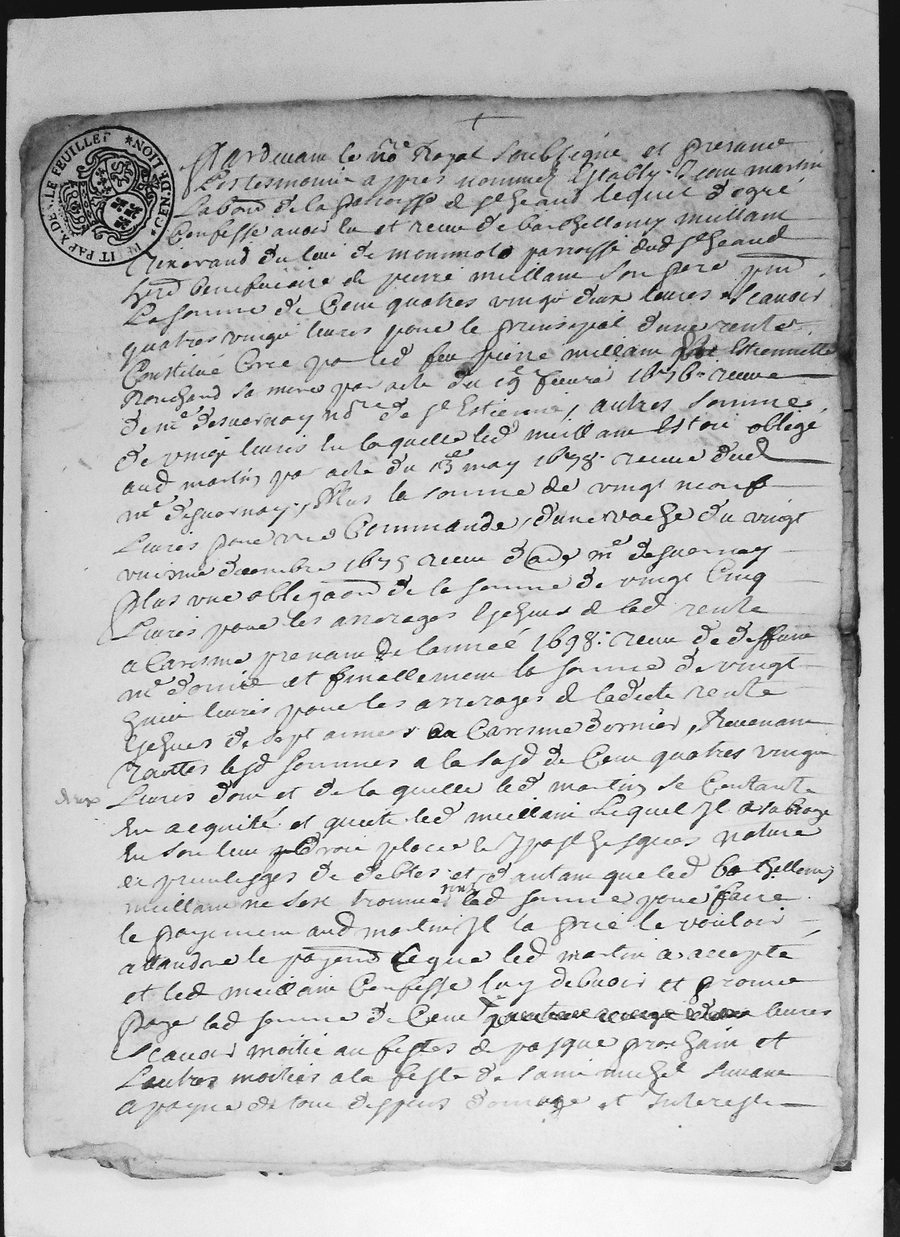 GEN. DE LION
LE FEUILLET
PETIT PAP.
Pardevant le nore Royal soubsigné et presence
Les tesmoins appres nommez Estably Jean martin
Labour de la parroisse de st geand lequel de gre
Confesse avoir eu et receu de barthellemy meillam
du lieu de parroisse dud st geand
herd beneficiaire de pierre meillam son pere pnt
La somme de Cent quatres vingt deux livres scavoir
quatres vingt livres pour le prinsipal dune rente
Constitué Cree par led feu pierre meillam Estiennette
sa mere par acte du 19e feuvrié 1676 receue
de me desvernay nore de st Estienne, autres somme
de vingt livres En laquelle led meillam Estoit obligé
aud martin par acte du 13e may 1678 receue dud
me desvernay, Plus la somme de vingt neuf
Livres pour vne Commande, dune vache du vingt
decembre 1675 receu dud me desvernay
Plus vne obligaon de la somme de vingt Cinq
Livres pour les arrerages Eschus de lad rente
a Caresme prenant de lannée 1698 receue de deffunt
me et finallement la somme de vingt
huit livres pour les arrerages de ladicte rente
Eschus de sept années au Caresme dernier, Revenant
touttes lesd sommes a la susd de Cent quatres vingt
deux
Livres dont et de laquelle led martin se Contante
En acquité et quitte led meillam Lequel Il a subrogé
En son lieu droit place et ypothesques nature
et privilleges de debtes et dautant que led barthellemy
meillam ne sest trouvé lad somme pour faire
le payement aud martin Il la prié le vouloir
attandre le payemt Ce que led martin a accepté
et led meillam Confesse luy debvoir et promet
paye lad somme de Cent quatres vingt deux livres
Scavoir moitié au festes de pasque prochain et
Lautres moitiés a la feste de saint michel suivant
a payne de tous despens domage et Interests